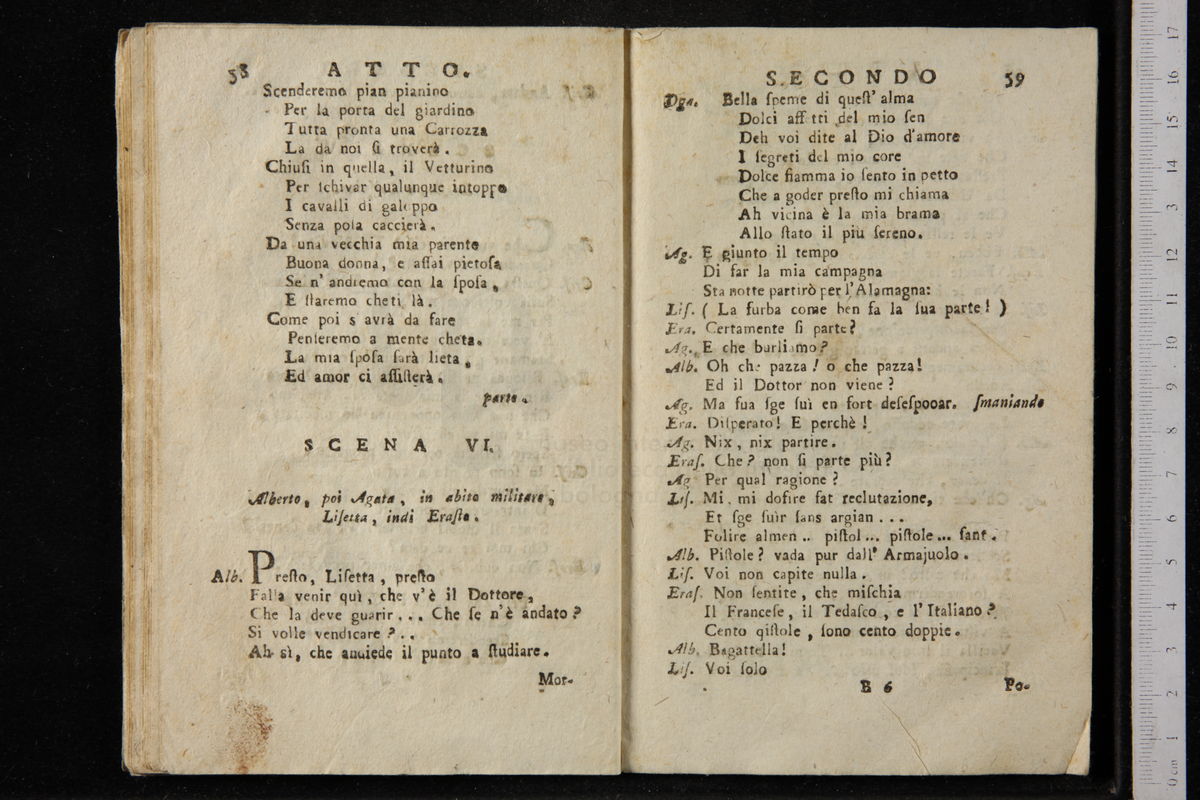 58 ATTO.
Scenderemo pian pianino
Per la porta del giardino
Tutta pronta una Carrozza
La da noi ſi troverà.
Chiuſi in quella, il Vetturino
Per ſchivar qualunque intoppo
I cavalli di galoppo
Senza poſa caccierà.
Da una vecchia mia parente
Buona donna, e aſſai pietoſa
Se n' andremo con la ſpoſa,
E ſtaremo cheti là.
Come poi s avrà da fare
Penſeremo a mente cheta.
La mia ſpoſa ſarà lieta,
Ed amor ci aſſiſterà.
parte.
SCENA VI.
Alberto, poi Agata, in abito militare,
Liſetta, indi Eraſto.
Alb. Preſto, Liſetta, preſto
Falla venir quì, che v'è il Dottore,
Che la deve guarir... Che ſe n'è andato?
Si volle vendicare?..
Ah sì, che anuiede il punto a ſtudiare.
Mor-
SECONDO 59
Dga. Bella ſpeme di queſt' alma
Dolci aff tti del mio ſen
Deh voi dite al Dio d'amore
I ſegreti del mio core
Dolce fiamma io ſento in petto
Che a goder preſto mi chiama
Ah vicina è la mia brama
Allo ſtato il più ſereno.
Ag. E giunto il tempo
Di far la mia campagna
Sta notte partirò per l'Alamagna:
Liſ. ( La furba come ben fa la ſua parte! )
Era. Certamente ſi parte?
Ag. E che burliamo?
Alb. Oh che pazza! o che pazza!
Ed il Dottor non viene?
Ag. Ma fua ſge ſuì en fort deſeſpooar. ſmaniando
Era. Diſperato! E perchè!
Ag. Nix, nix partire.
Eraſ. Che? non ſi parte più?
Ag Per qual ragione?
Liſ. Mi, mi dofire fat reclutazione,
Et ſge ſuìr ſans argian...
Folire almen.. piſtol... piſtole... ſant.
Alb. Piſtole? vada pur dall' Armajuolo.
Liſ. Voi non capite nulla.
Eraſ. Non ſentite, che miſchia
Il Franceſe, il Tedaſco, e l'Italiano?
Cento qiſtole, ſono cento doppie.
Alb. Bagattella!
Liſ. Voi ſolo
E 6 Po-